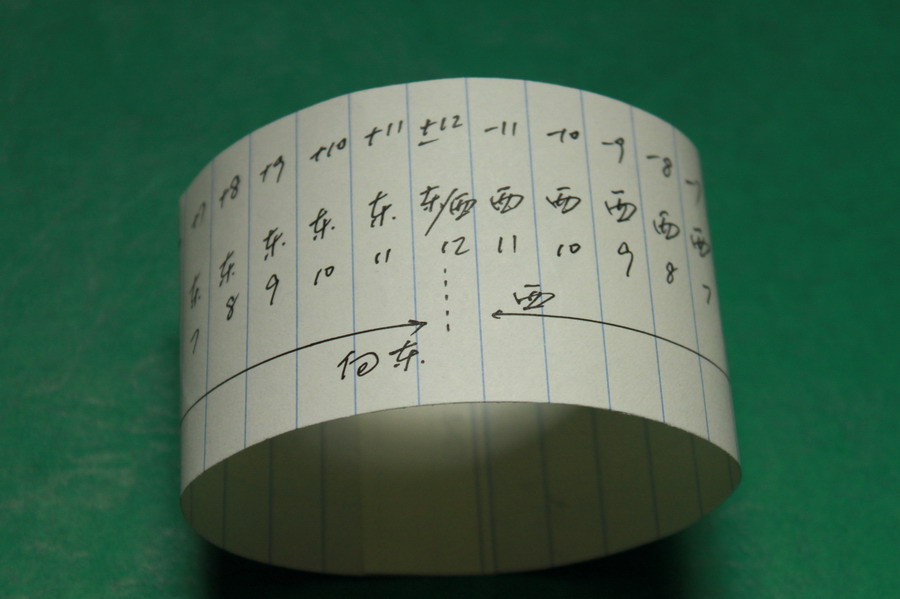 +7 +8 +9 +10 +11 ±12 -11 -10 -9 -8 -7
东 东 东 东 东 东/西 西 西 西 西 西
7 8 9 10 11 12 11 10 9 8 7
西
向东